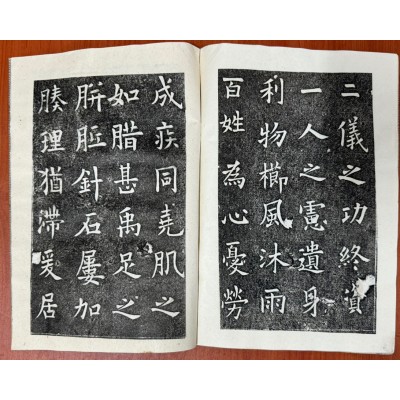 二儀之功終資
一人之慮遺身
利物櫛風沐雨
百姓為心憂勞
成疾同堯肌之
如腊甚禹足之
胼胝針石屢加
腠理猶滯爰居